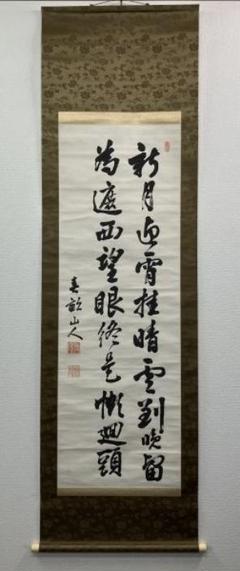 新月迎宵挂晴雲到晚留
為遮西望眼終是懶廻頭
春畝山人